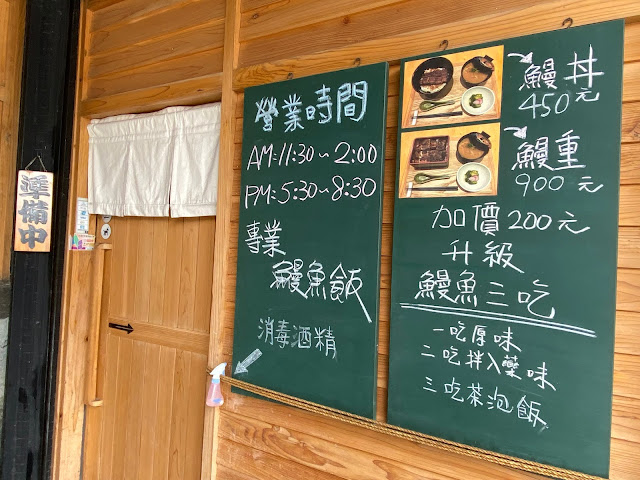 準備中
營業時間
AM:11:30~2:00
PM:5:30~8:30
專業
鰻魚飯
消毒酒精
鰻丼
450元
鰻重
900元
加價200元
升級
鰻魚三吃
一吃厚味
二吃拌入藥味
三吃茶泡飯